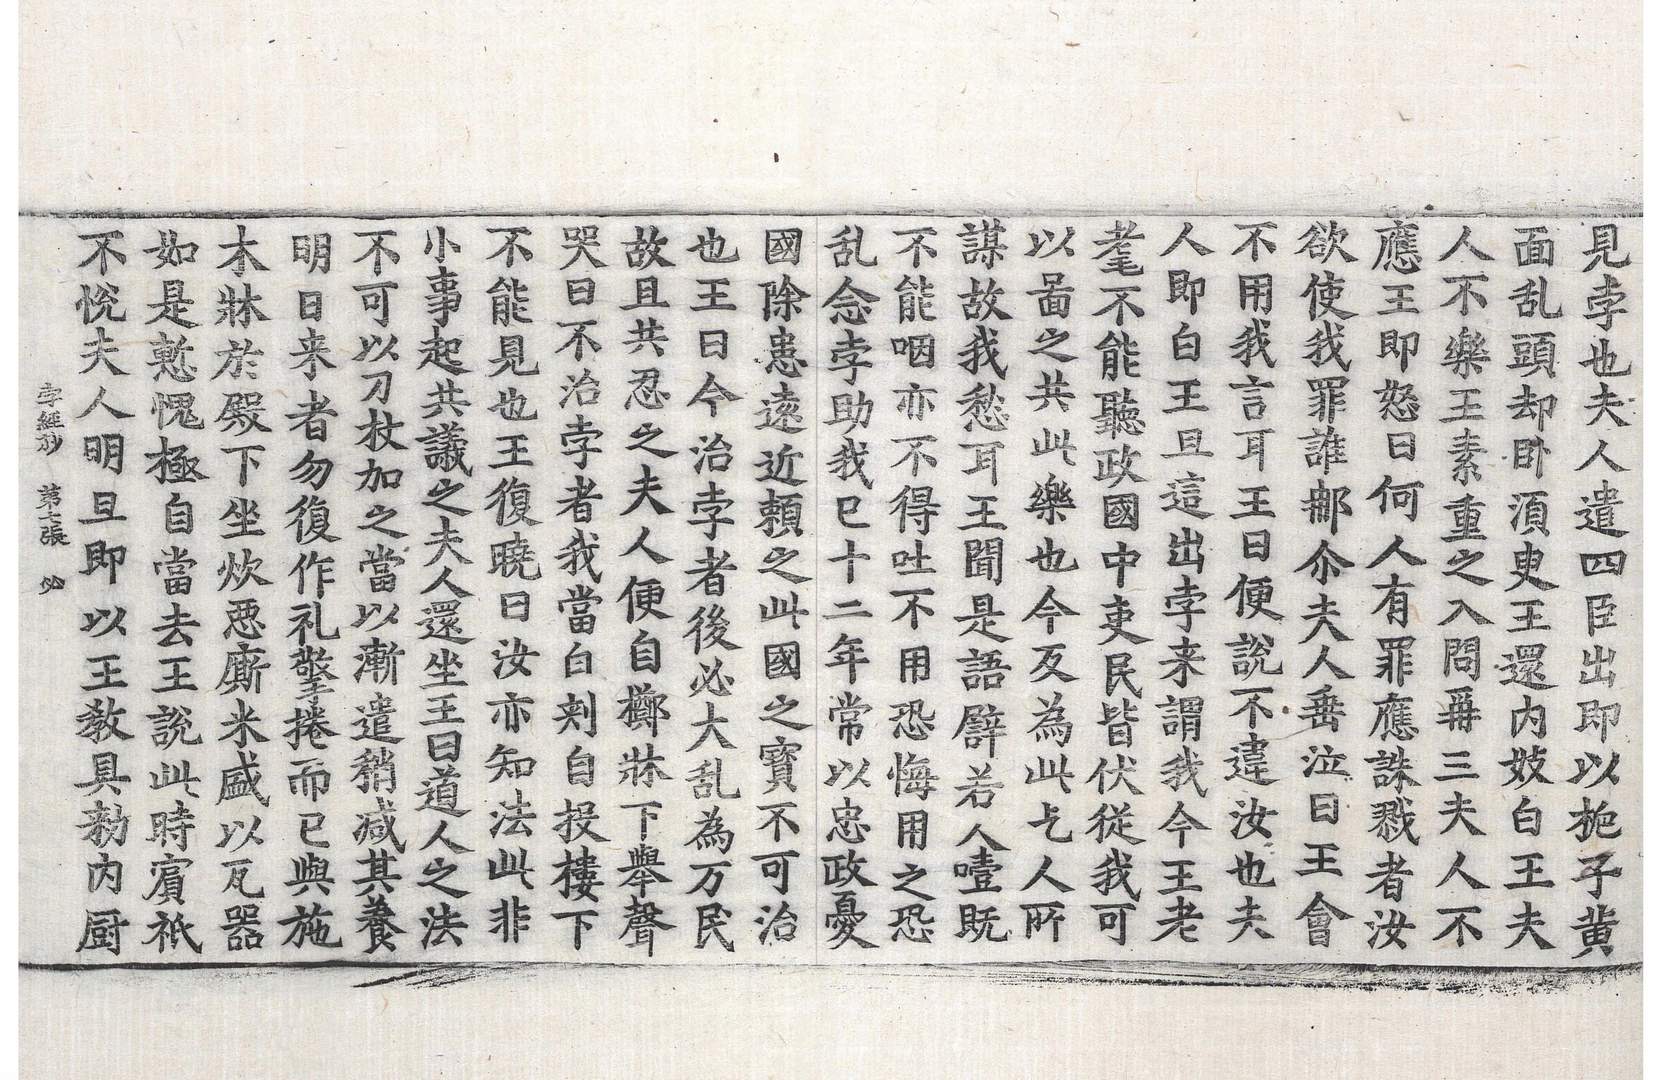 見孛也夫人遣四臣出即以栀子黄
面乱頭却卧湏臾王還内妓白王夫
人不樂王素重之入問再三夫人不
應王即怒曰何人有罪應誅戮者汝
欲使我罪誰邮尒夫人垂泣曰王會
不用我言耳王曰便說不違汝也夫
人即白王旦這出孛来謂我今王老
耄不能聽政國中吏民皆伏従我可
以啚之共此樂也今反為此乞人所
謀故我愁耳王聞是語譬若人噎既
不能咽亦不得吐不用恐悔用之恐
乱念孛助我已十二年常以忠政憂
國除患逺近頼之此國之寳不可治
也王曰今治孛者後必大乱為万民
故且共忍之夫人便自擲牀下舉聲
哭曰不治孛者我當自刺自投樓下
不能見也王復曉曰汝亦知法此非
小事起共議之夫人還坐王曰道人之法
不可以刀杖加之當以漸遣稍减其養
明日来者勿復作礼擎捲而已與施
木牀於殿下坐炊惡廝米盛以瓦器
如是慙愧極自當去王說此時賔祇
不悦夫人明旦即以王教具勑内厨
孛經抄　第七張　必